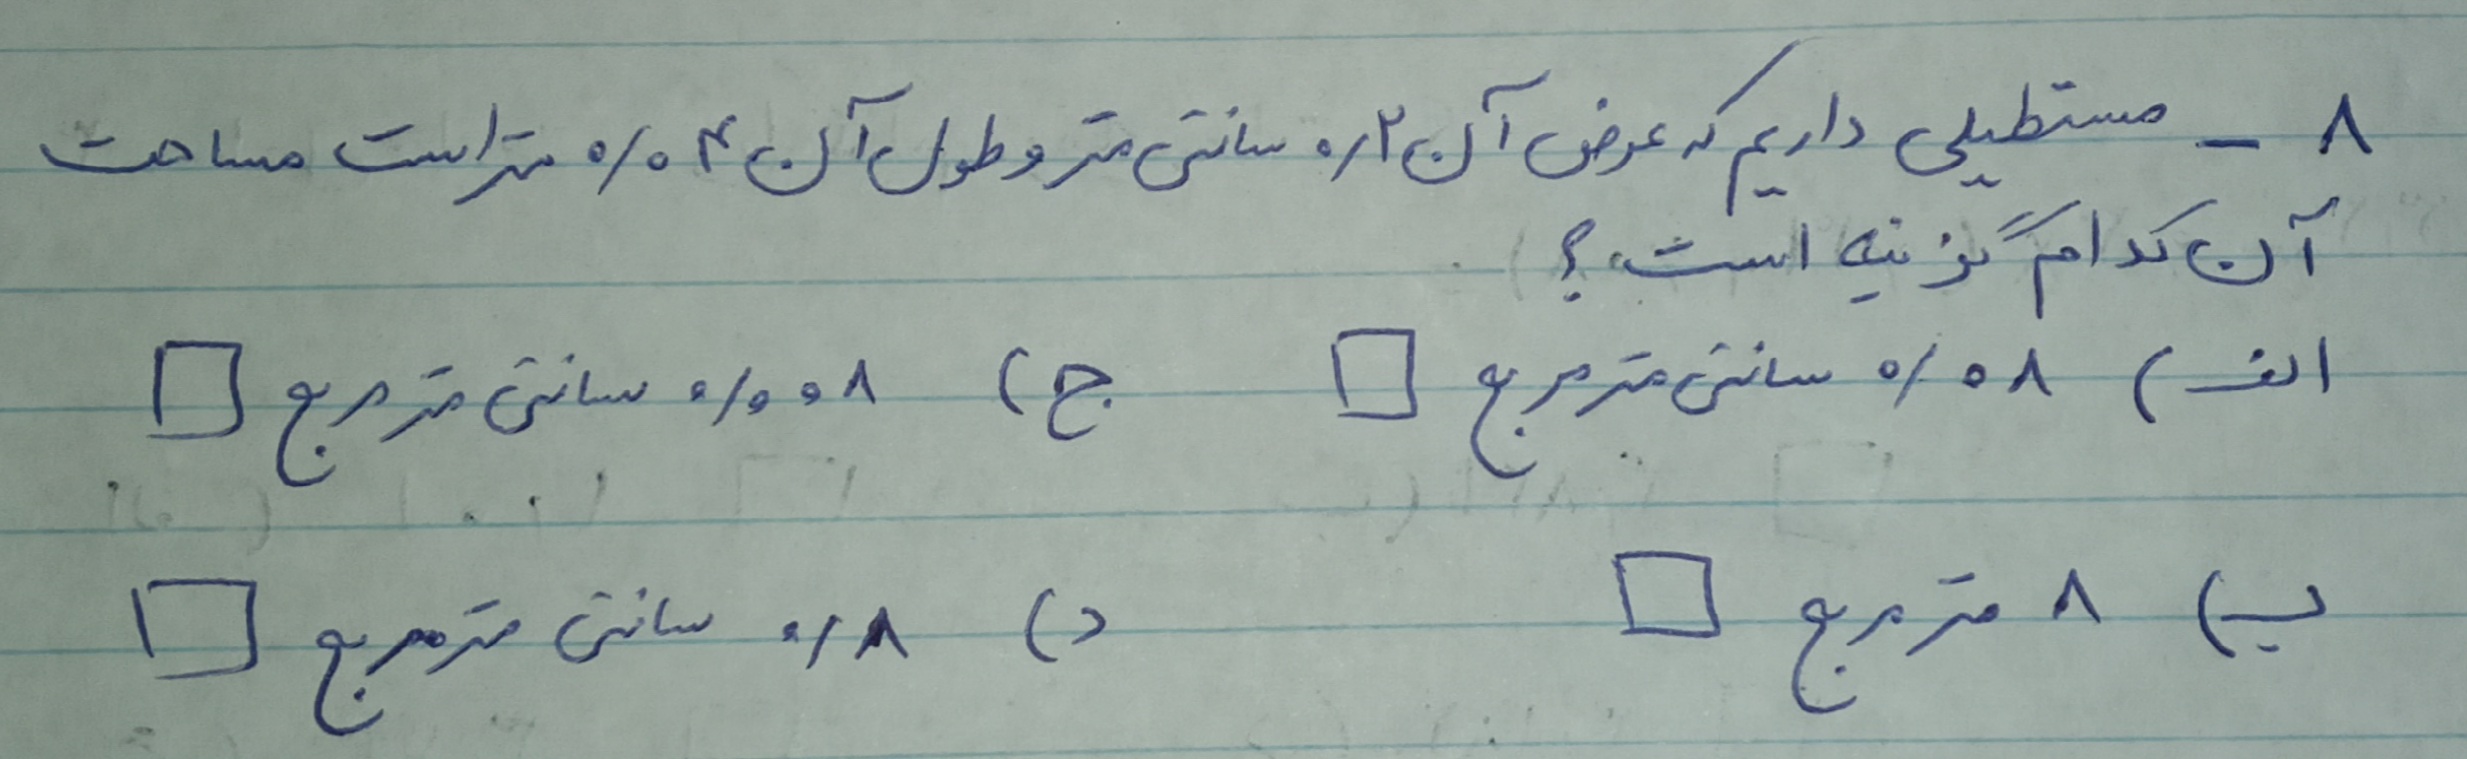 ۸ – مستطیلی داریم که عرض آن ۰/۲ سانتی متر و طول آن ۰/۰۴ متر است مساحت
آن کدام گزینه است؟
الف) ۰/۰۸ سانتی متر مربع □ ج) ۰/۰۰۸ سانتی متر مربع □
ب) ۸ متر مربع □ د) ۰/۸ سانتی متر مربع □